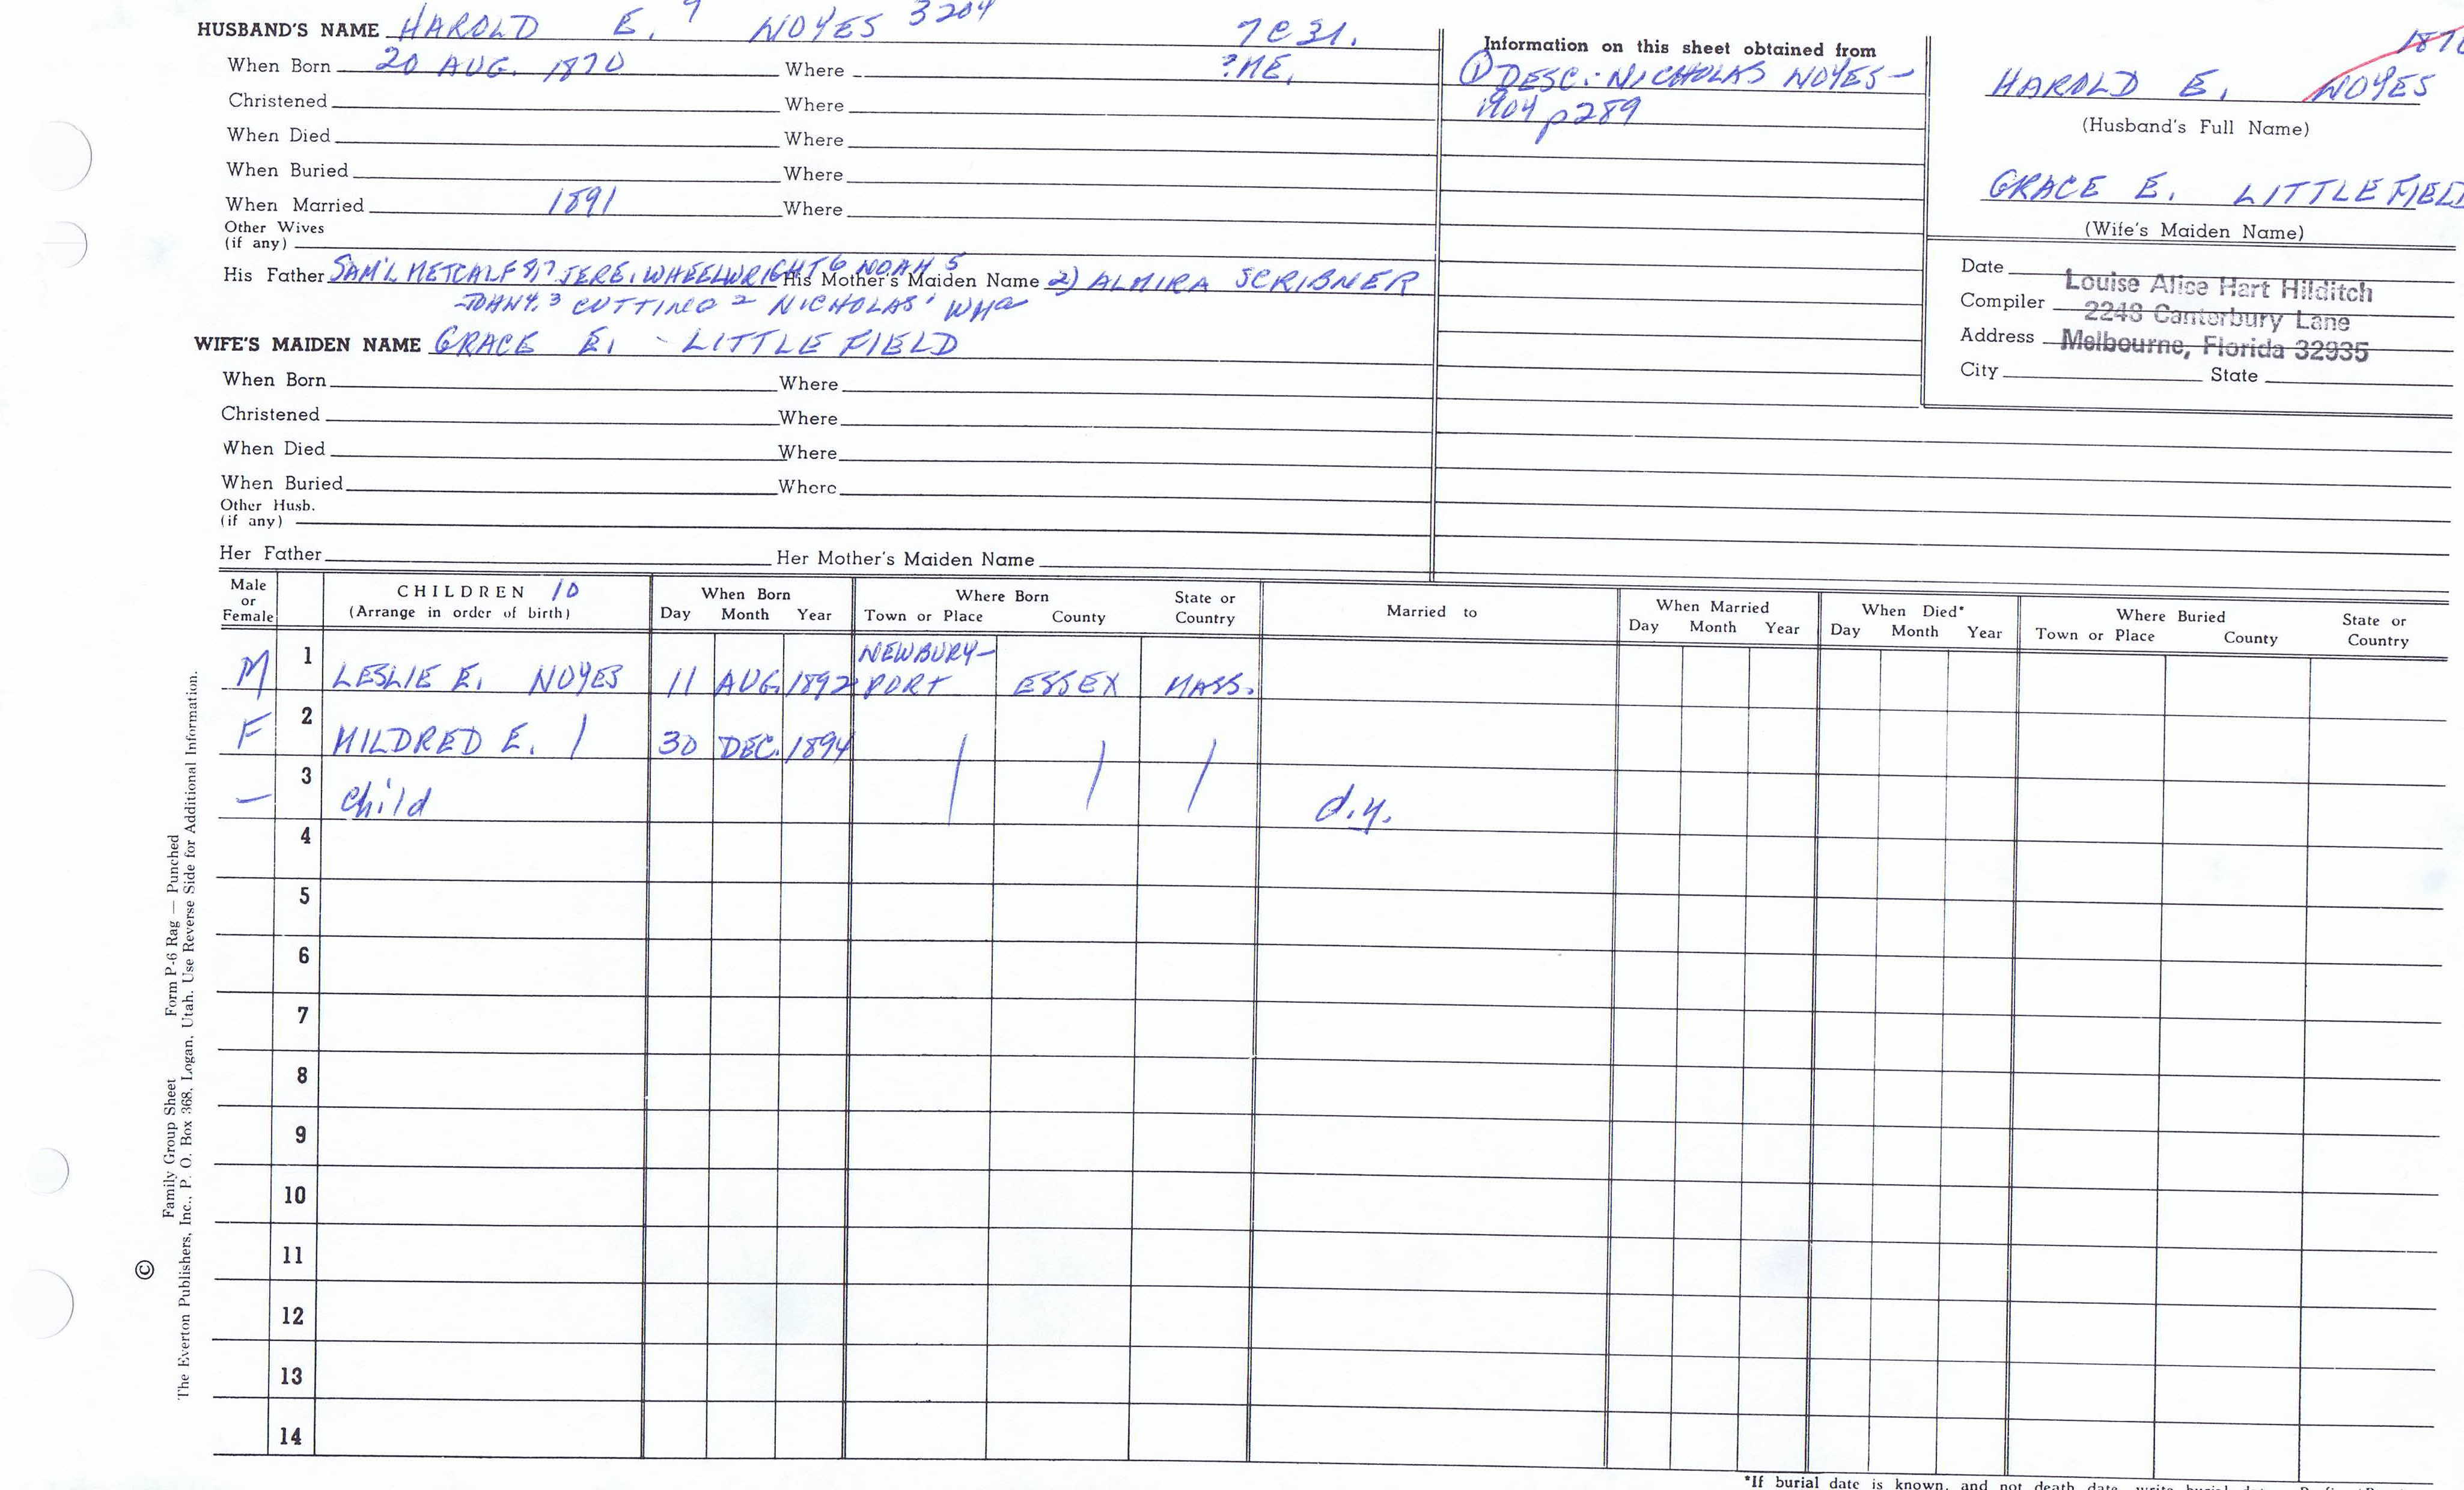 HUSBAND'S NAME HAROLD E. 9 NOYES 3204 7C31.
When Born 20 AUG. 1870 Where ?ME.
Christened Where
When Died Where
When Buried Where
When Married 1891 Where
Other Wives
(if any)
His Father SAM'L METCALF 8,7 JERE. WHEELWRIGHT 6 NOAH 5 His Mother's Maiden Name 2) ALMIRA SCRIBNER
3 CUTTING 2 NICHOLAS'
WIFE'S MAIDEN NAME GRACE E. - LITTLEFIELD
When Born Where
Christened Where
When Died Where
When Buried Where
Other Husb.
(if any)
Her Father Her Mother's Maiden Name
Information on this sheet obtained from
① DESC. NICHOLAS NOYES-
1904 p289
HAROLD E. NOYES
(Husband's Full Name)
GRACE E. LITTLEFIELD
(Wife's Maiden Name)
Date
Louise Alice Hart Hilditch
Compiler 2248 Canterbury Lane
Address Melbourne, Florida 32935
City State
Male or Female CHILDREN 10 (Arrange in order of birth) When Born Day Month Year Where Born Town or Place County State or Country Married to When Married Day Month Year When Died* Day Month Year Where Buried Town or Place County State or Country
M 1 LESLIE E. NOYES 11 AUG. 1892 NEWBURY-PORT ESSEX MASS.
F 2 MILDRED E. 30 DEC. 1894
— 3 child d.y.
4
5
6
7
8
9
10
11
12
13
14
© Family Group Sheet Form P-6 Rag — Punched
The Everton Publishers, Inc., P. O. Box 368, Logan, Utah. Use Reverse Side for Additional Information.
*If burial date is known, and not death date, write burial